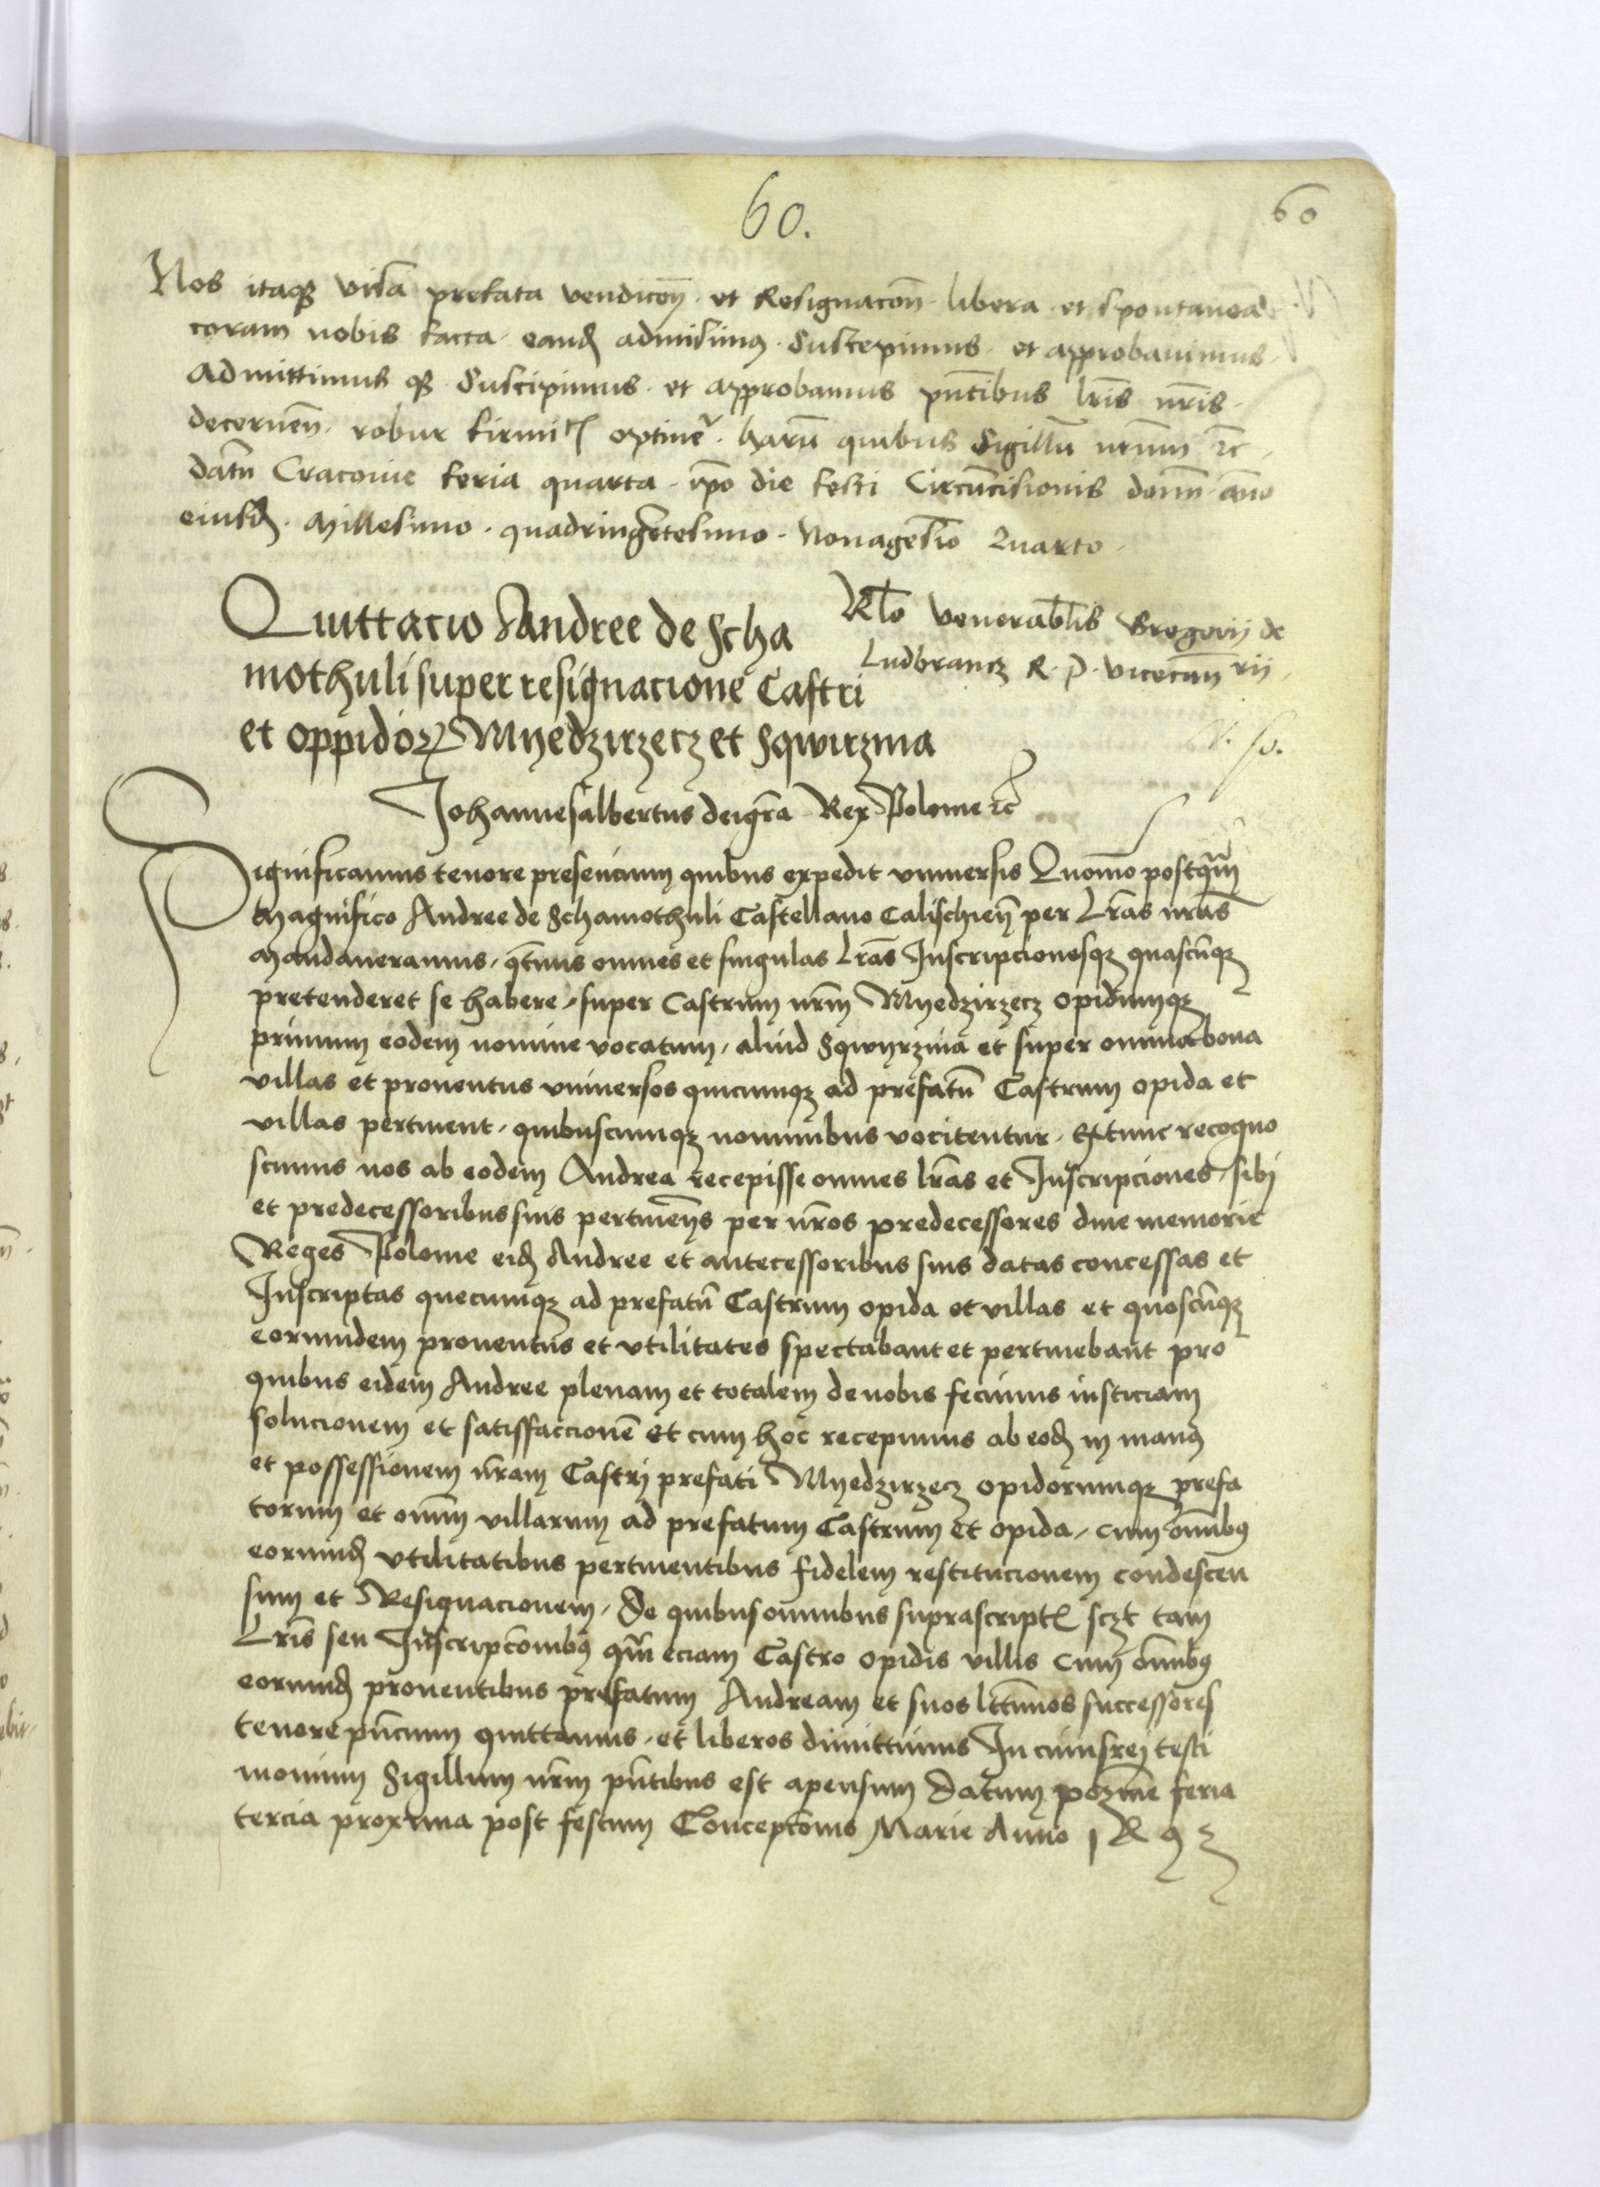 60.
60
Nos itaqꝫ visa prefata vendicoēꝫ · et Resignacoñ · libera · et spontanea
coram nobis facta · eandꝫ admisimꝰ · suscepimus · et approbavimus ·
Admittimus qꝫ · suscipimus · et approbamus pñtibus lr̄is nr̄is ·
decernen̄ · robur firmitꝭ optiner̄ · harū quibus Sigillū nr̄um ꝛc ·
datū Cracovie feria quarta · ip̄o die festi Circūcisionis domī · āno
eiusdꝫ · Millesimo · quadringētesimo · Nonagesīo Quarto ·
Rl̄o venerabl̄is Gregorii de
Ludbrancz R · P · vicecan̄rii
Quittacio Andree de Scha
mothuli super resignacione Castri
et oppidoꝝ Myedzirzecz et Sqwirzina
Johannes albertus dei gr̄a Rex Polonie ꝛc̄
Significamus tenore presencium quibus expedit universis Quomō postqm̄
Magnifico Andree de Schamothuli Castellano Calischien̄ per Lr̄as nr̄as
Mandaveramus, q̄tinus omnes et singulas Lr̄as Inscripcionesqꝫ quascūqꝫ
pretenderet se habere, super Castrum nr̄m Myedzirzecz opidumqꝫ
primum eodem nomine vocatum, aliud Sqwyrzina et super omnia bona
villas et proventus universos quicumqꝫ ad prefatū Castrum opida et
villas pertinent, quibuscumqꝫ nominibus vocitentur, Extunc recogno
scimus nos ab eodem Andrea recepisse omnes lr̄as et Inscripciones, sibi
et predecessoribus suis pertinen̄s per nr̄os predecessores dive memorie
Reges Polonie eidꝫ Andree et antecessoribus suis datas concessas et
Inscriptas quecumqꝫ ad prefatū Castrum opida et villas et quoscūqꝫ
eorumdem proventus et utilitates spectabant et pertinebant pro
quibus eidem Andree plenam et totalem de nobis fecimus iusticiam
solucionem et satisfaccionē Et cum hoc recepimus ab eodꝫ in manꝰ
et possessionem nr̄am Castri prefati Myedzirzecz opidorumqꝫ prefa
torum et omīm villarum ad prefatum Castrum et opida, cum om̄ibꝰ
eorumdꝫ utilitatibus pertinentibus fidelem restitucionem condescen
sum et Resignacionem, De quibus omnibus suprascriptꝭ sczt tam
Lr̄is seu Inscripcōnibꝰ qm̄ eciam Castro opidis villis cum om̄ibꝰ
eorumdꝫ proventibus prefatum Andream et suos ltt̄imos successores
tenore pn̄cium quittamus, et liberos dimittimus In cuius rei testi
monium Sigillum nr̄m pn̄tibus est apensum Datum poznānie feria
tercia proxima post festum Concepcōnis Marie Anno 1 4 9 3